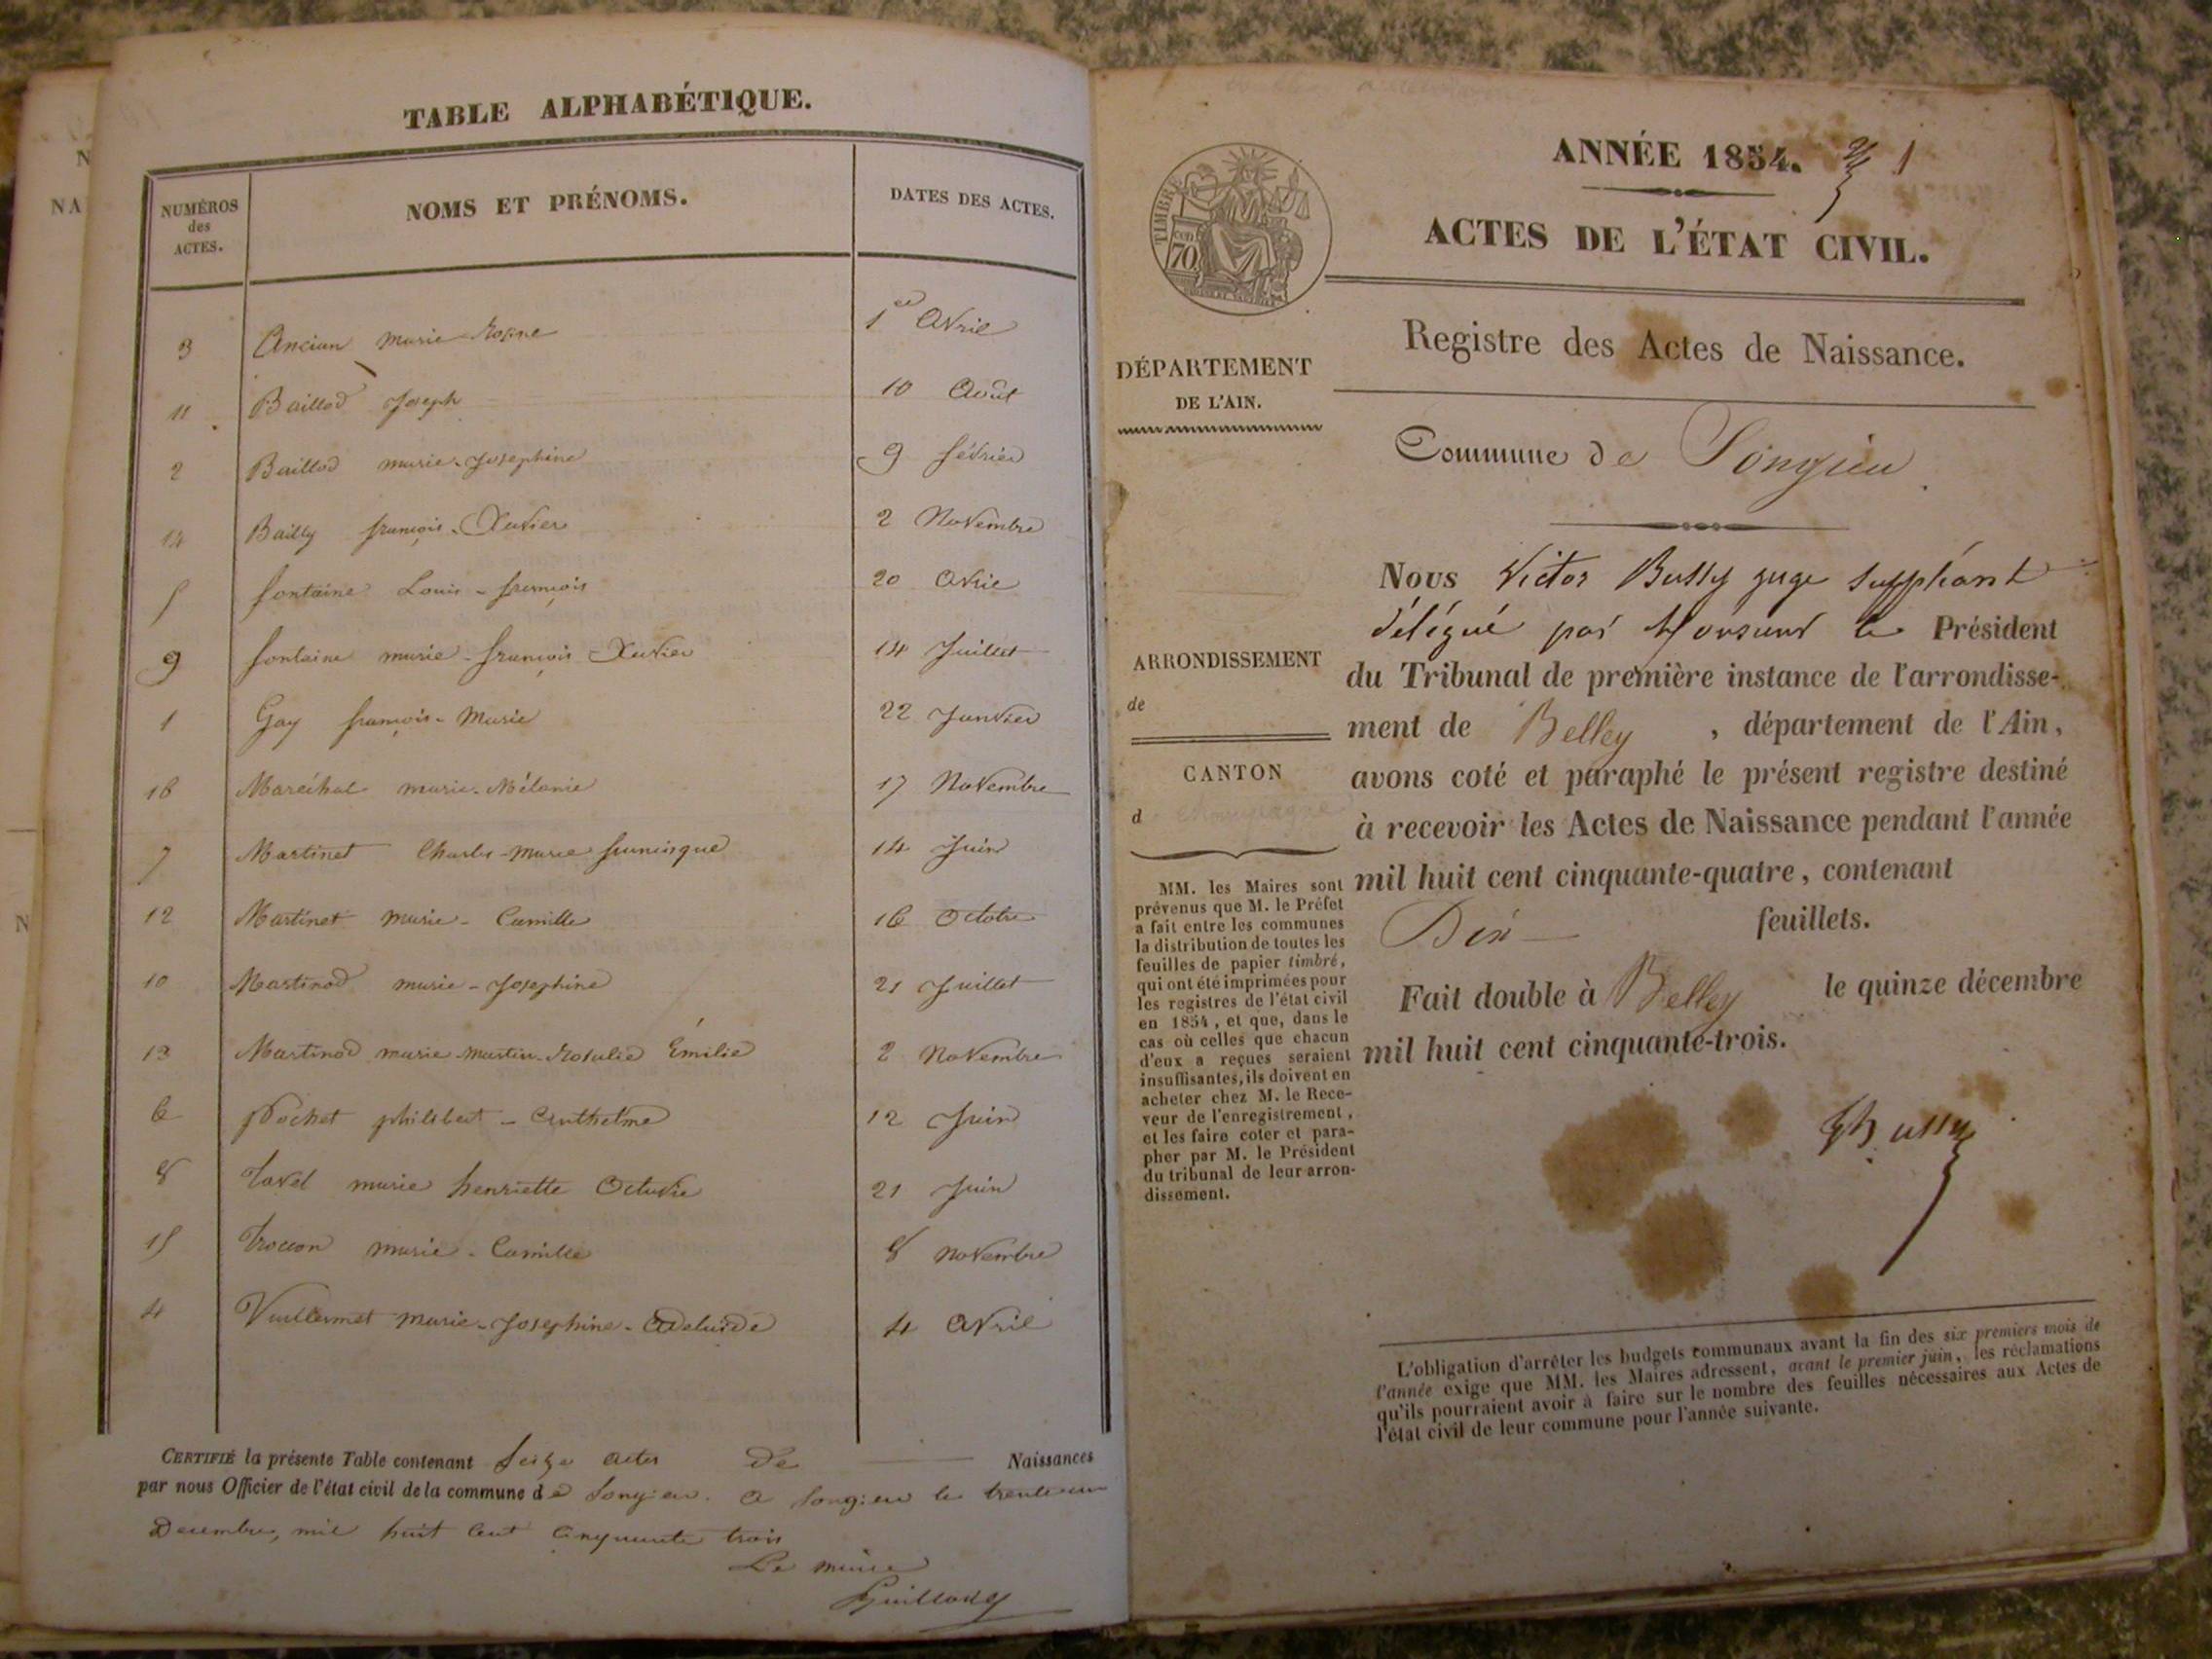 TABLE ALPHABÉTIQUE.
NUMÉROS des ACTES. NOMS ET PRÉNOMS. DATES DES ACTES.
3 Ancian marie Rosine 1er Avril
11 Baillod Joseph 10 Août
2 Baillod marie-Josephine 9 février
14 Bailly françois-Xavier 2 Novembre
5 fontaine Louis-françois 20 Avril
9 fontaine marie-françois Xavier 14 Juillet
1 Gay françois-Marie 22 Janvier
16 Maréchal marie-Mélanie 17 Novembre
7 Martinet Charles-marie 14 Juin
12 Martinet marie-Camille 16 Octobre
10 Martinod marie-Josephine 21 Juillet
13 Martinod marie-martin-Rosalie Émilie 2 Novembre
6 Pochet philibert-Anthelme 12 Juin
8 Tavel marie henriette Octavie 21 Juin
15 marie-Camille 8 novembre
4 Vuillermet marie-Josephine-Adelaïde 4 Avril
CERTIFIÉ la présente Table contenant seize actes de Naissances
par nous Officier de l'état civil de la commune de Songieu. a Songieu le trente un
Décembre, mil huit cent cinquante trois
Le maire
ANNÉE 1854. 1
TIMBRE
70
ACTES DE L'ÉTAT CIVIL.
Registre des Actes de Naissance.
DÉPARTEMENT
DE L'AIN.
Commune de Songieu
ARRONDISSEMENT
de
CANTON
d Champagne
MM. les Maires sont
prévenus que M. le Préfet
a fait entre les communes
la distribution de toutes les
feuilles de papier timbré,
qui ont été imprimées pour
les registres de l'état civil
en 1854, et que, dans le
cas où celles que chacun
d'eux a reçues seraient
insuffisantes, ils doivent en
acheter chez M. le Rece-
veur de l'enregistrement,
et les faire coter et para-
pher par M. le Président
du tribunal de leur arron-
dissement.
Nous Victor Bussy juge suppléant
délégué par Monsieur le Président
du Tribunal de première instance de l'arrondisse-
ment de Belley, département de l'Ain,
avons coté et paraphé le présent registre destiné
à recevoir les Actes de Naissance pendant l'année
mil huit cent cinquante-quatre, contenant
Dix feuillets.
Fait double à Belley le quinze décembre
mil huit cent cinquante-trois.
Bussy
L'obligation d'arrêter les budgets communaux avant la fin des six premiers mois de
l'année exige que MM. les Maires adressent, avant le premier juin, les réclamations
qu'ils pourraient avoir à faire sur le nombre des feuilles nécessaires aux Actes de
l'état civil de leur commune pour l'année suivante.